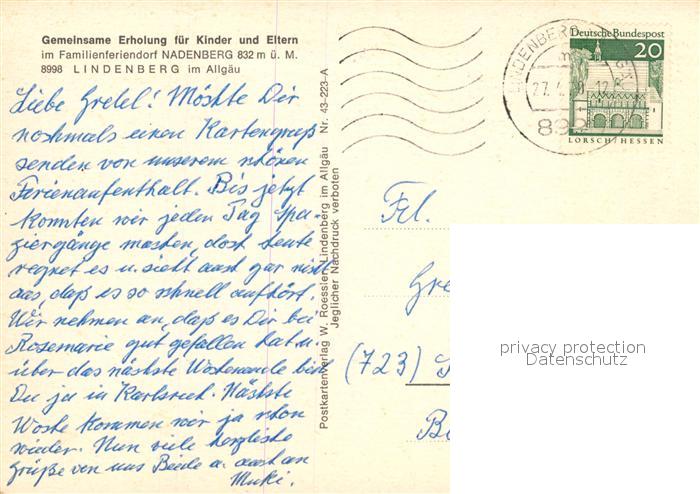 Gemeinsame Erholung für Kinder und Eltern
im Familienferiendorf NADENBERG 832 m ü. M.
8998 LINDENBERG im Allgäu
Liebe Gretel! Möchte Dir
nochmals einen Kartengruß
senden von unserem schönen
Ferienaufenthalt. Bis jetzt
konnten wir jeden Tag Spa-
ziergänge machen, doch heute
regnet es u. sieht auch gar nicht
aus, daß es so schnell aufhört.
Wir nehmen an, daß es Dir bei
Rosemarie gut gefallen hat u.
über das nächste Wochenende bist
Du ja in Karlsruh. Nächste
Woche kommen wir ja schon
wieder. Nun viele herzliche
Grüße von uns Beide u. auch an
Mutti.
Postkartenverlag W. Roessler, Lindenberg im Allgäu Nr. 43-223-A
Jeglicher Nachdruck verboten
LINDENBERG
27.
12
899
Deutsche Bundespost
20
LORSCH / HESSEN
Frl.
Gre
(723)
privacy protection
Datenschutz